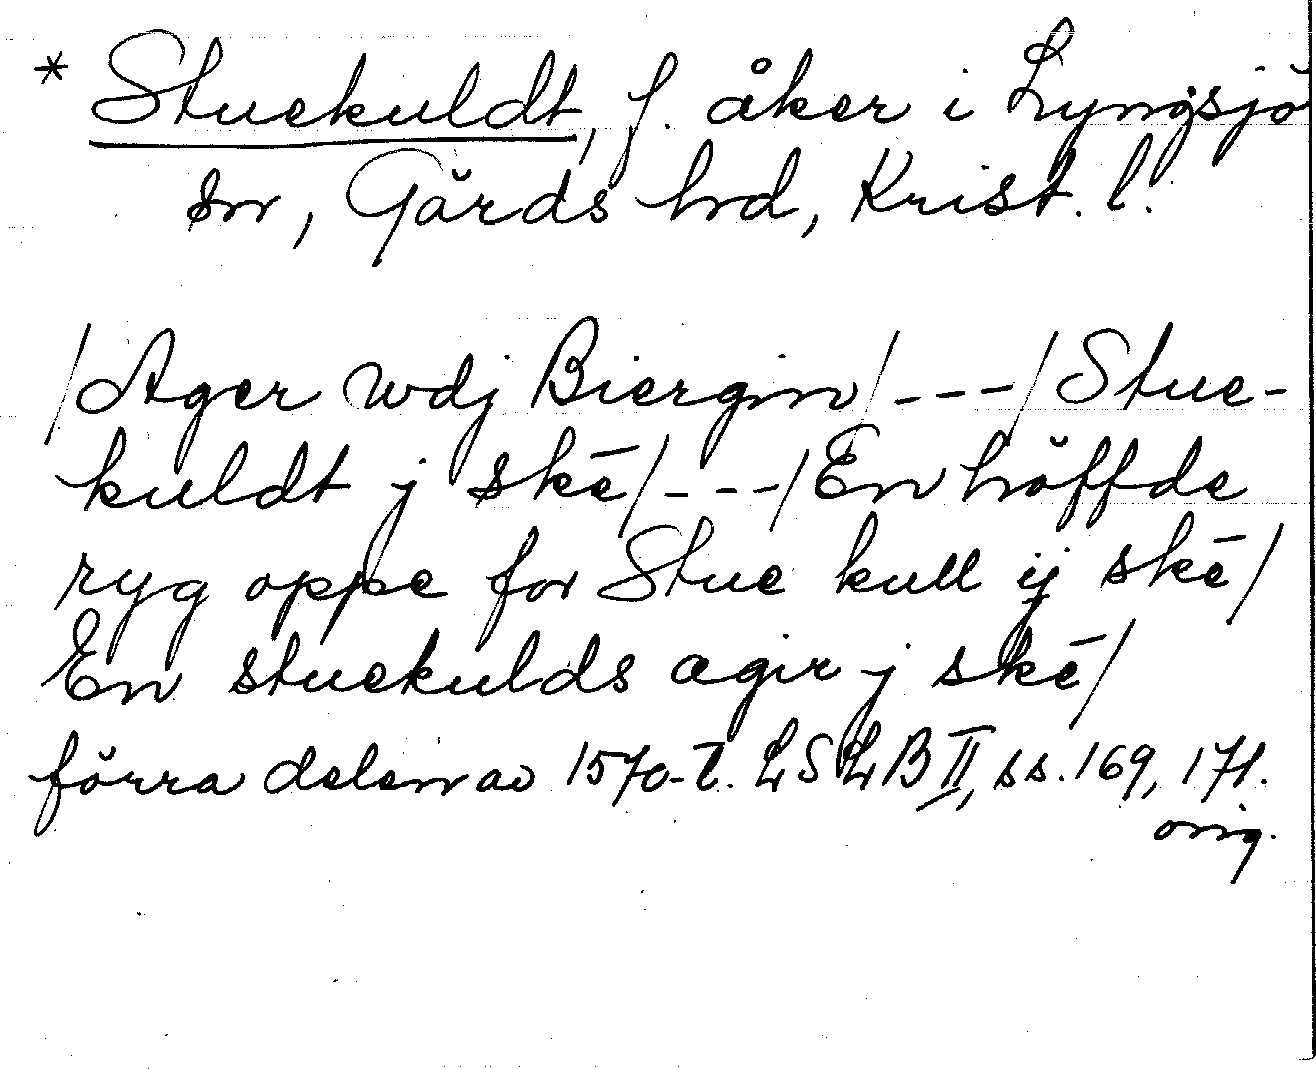 * Stuekuldt, f. åker i Lyngsjö
sn, Gärds hd, Krist. l.
/Ager wdj Biergin/ - - - / Stue-
kuldt j skē/ - - - / En höffde
ryg oppe for Stue kull ij skē/
En stuekulds agir j skē/
förra delen av 1570-t. LSLB II, ss. 169, 171.
orig.